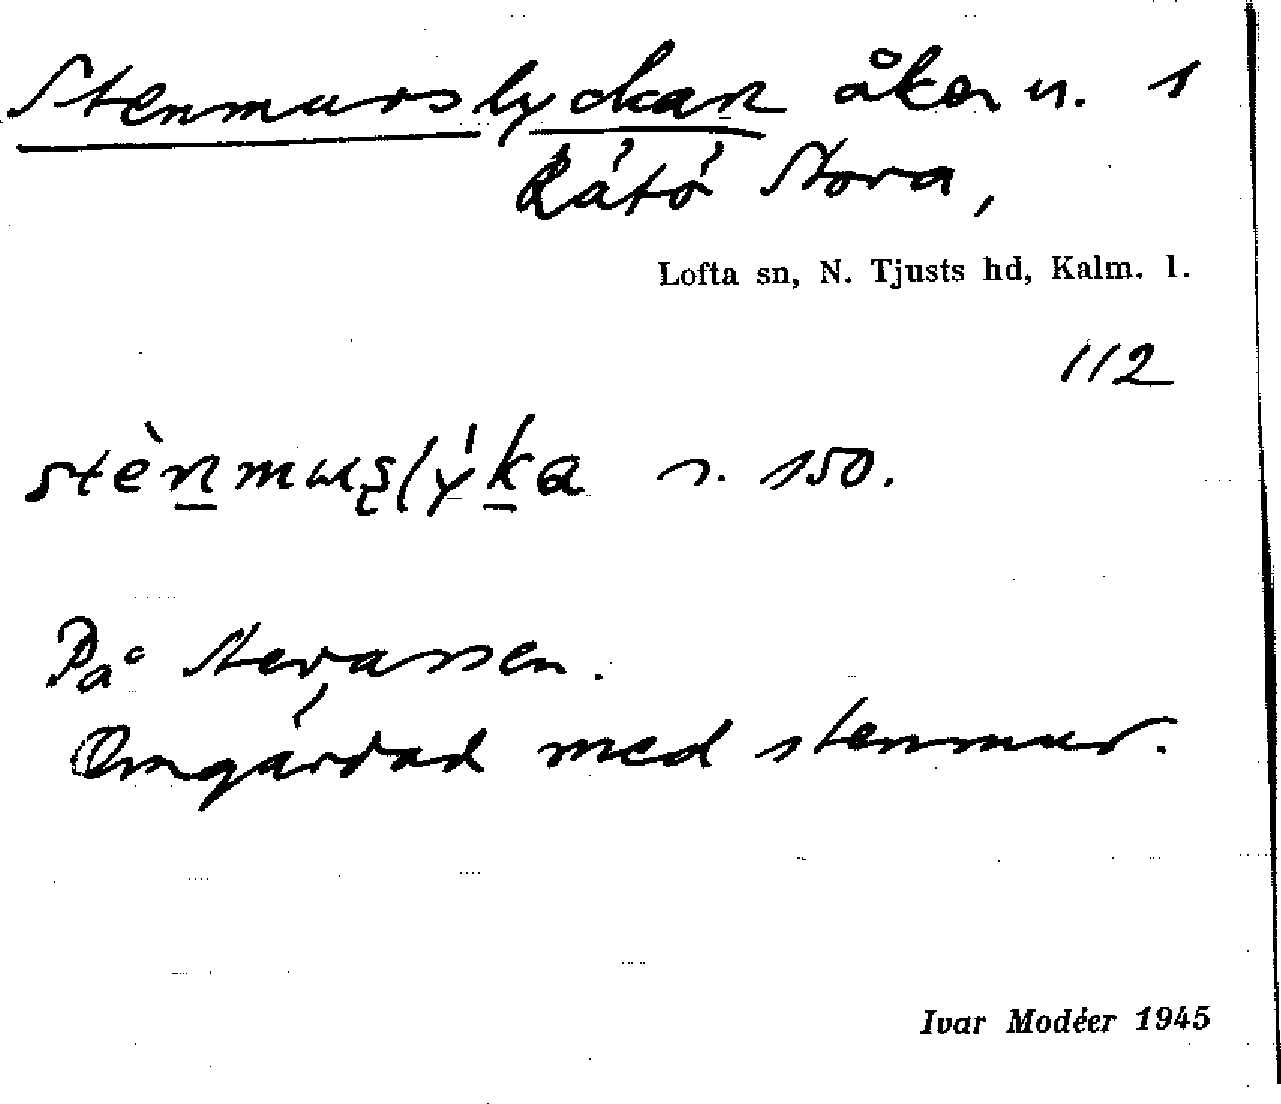 Stenmurslyckan åker n. 1
Råtö Stora,
Lofta sn, N. Tjusts hd, Kalm. l.
112
stènmuʂlýka s. 150.
På terassen.
Omgärdad med stenmur.
Ivar Modéer 1945